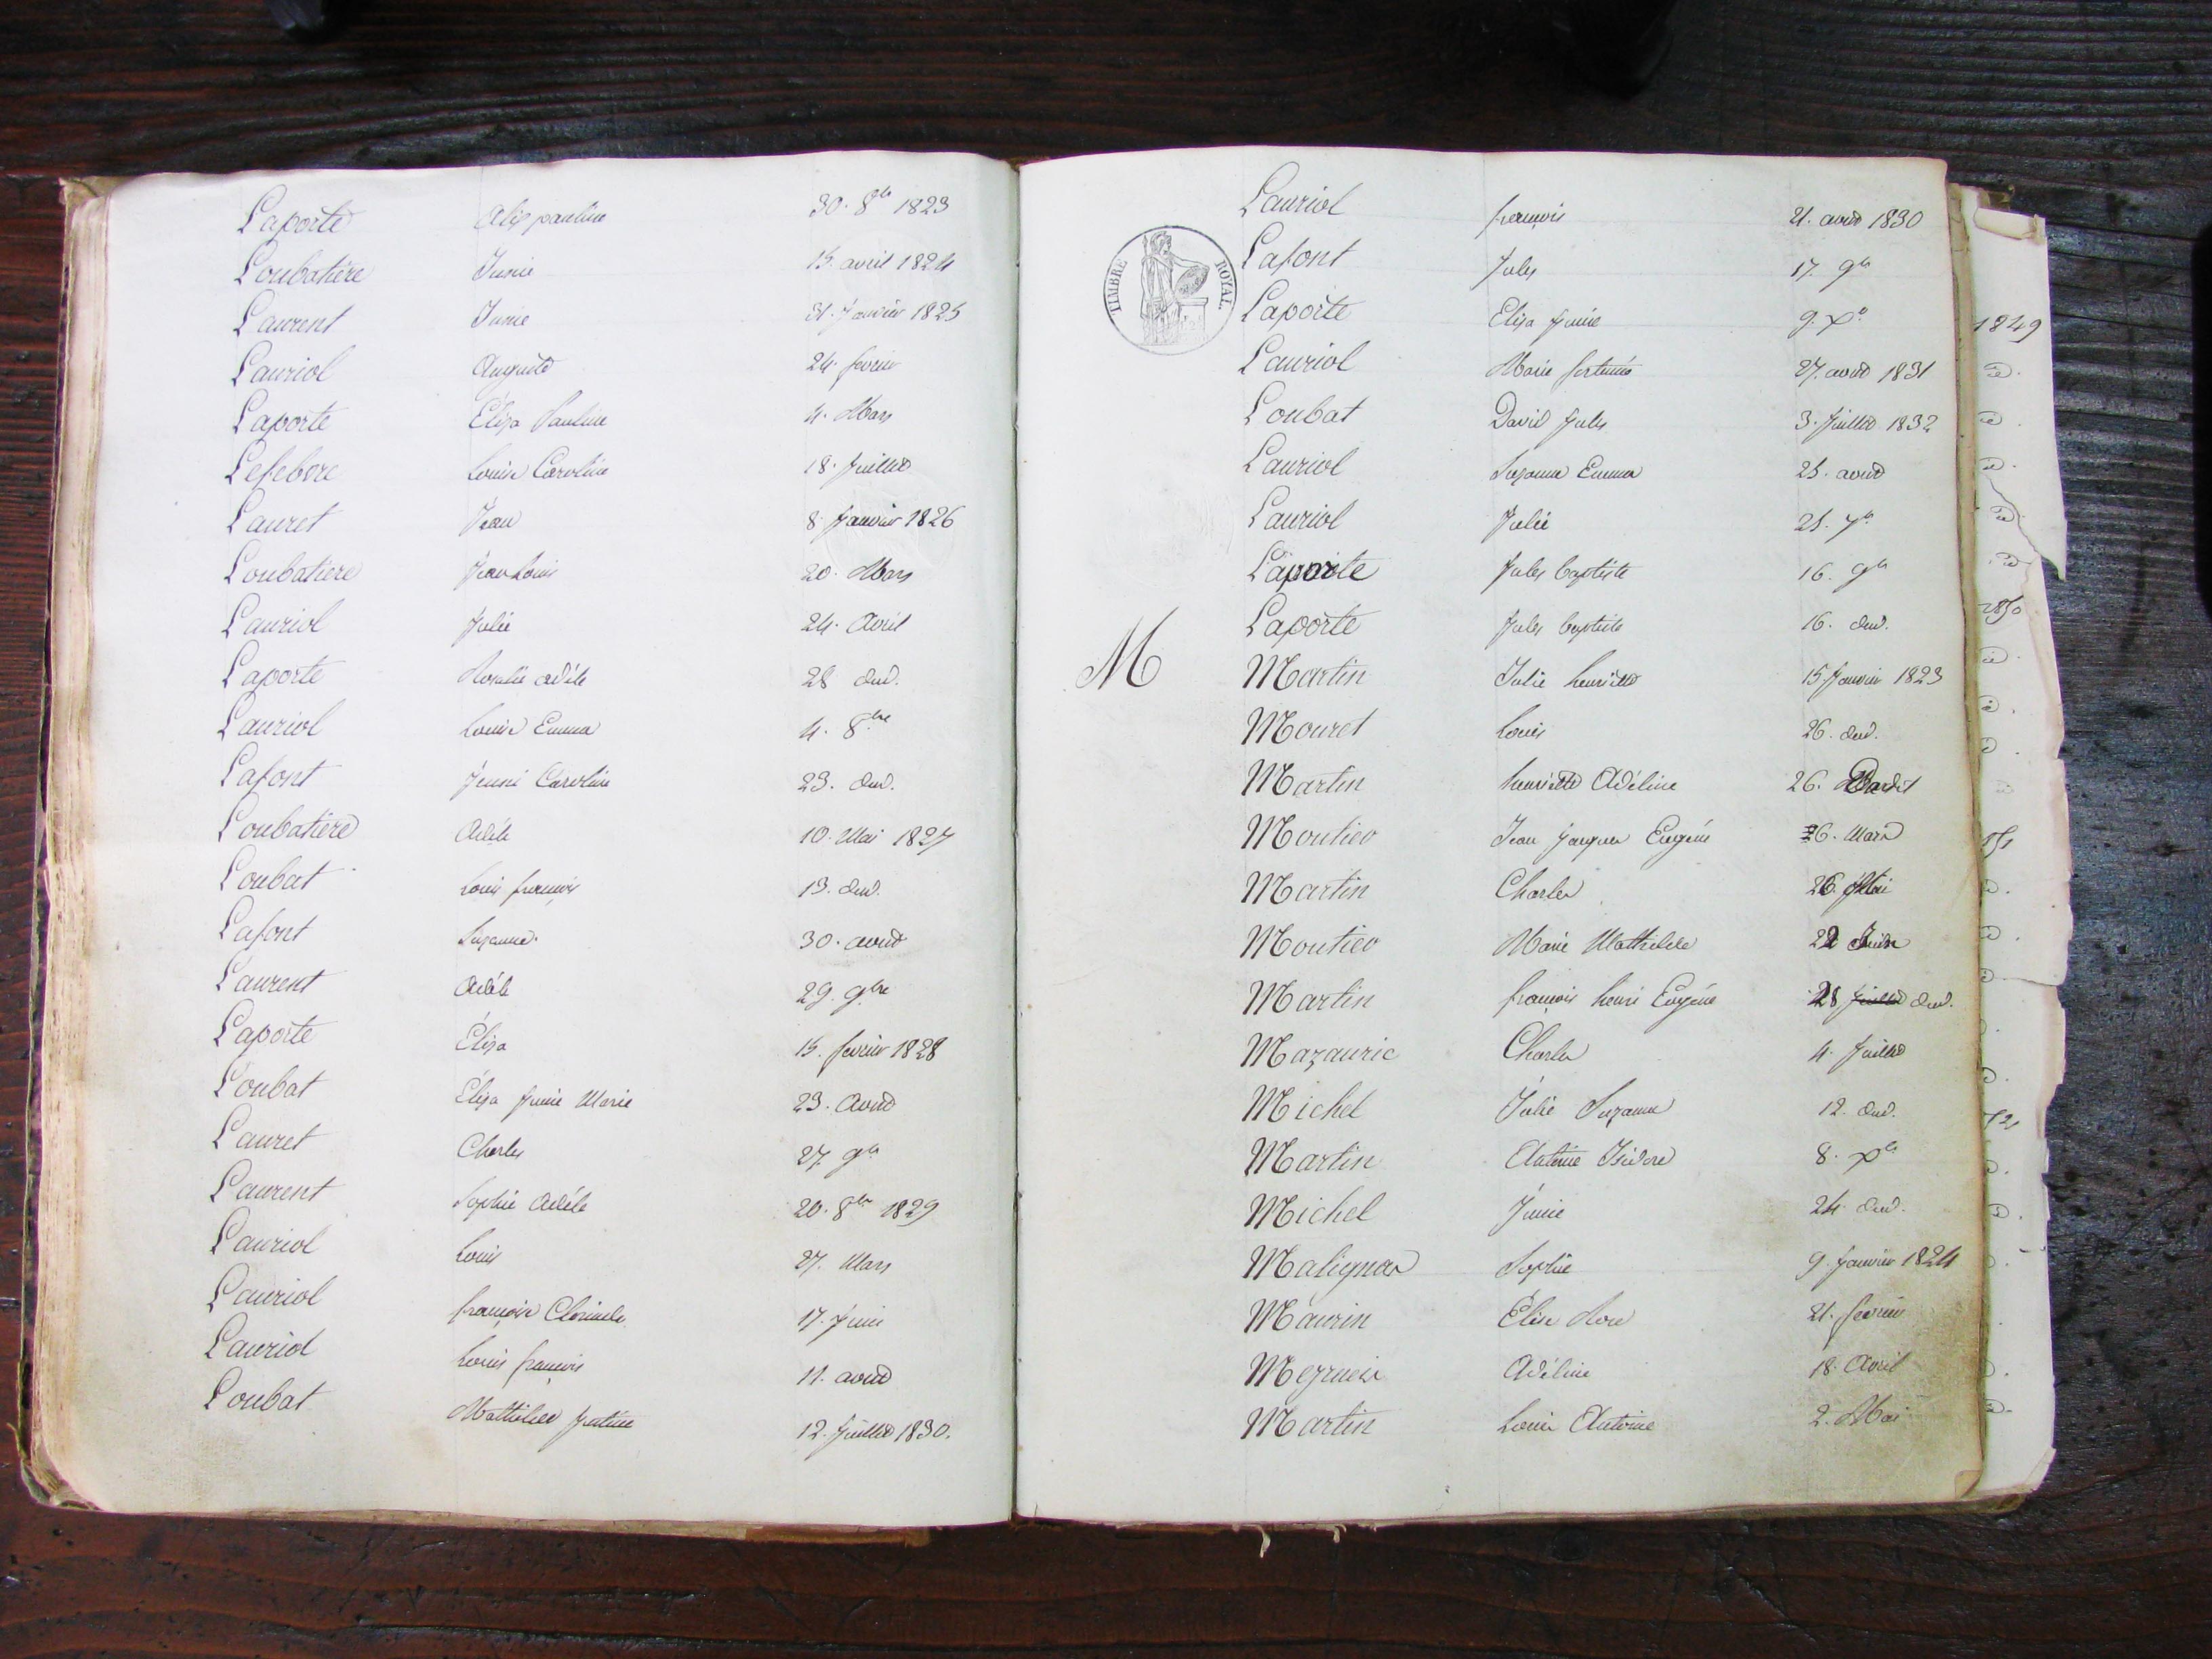 Laporte Alix pauline 30. 8bre 1823
Loubatière Junie 15. avril 1824
Laurent Junie 31. Janvier 1825
Lauriol Auguste 24. fevrier
Laporte Éliza Pauline 4. Mars
Lefebvre Louise Caroline 18. Juillet
Lauret Jean 8. Janvier 1826
Loubatiere Jean Louis 20. Mars
Lauriol Julie 24. Avril
Laporte Rosalie adèle 28 dud.
Lauriol Louise Emma 4. 8bre
Lafont Jenni Caroline 23. dud.
Loubatière Adèle 10. Mai 1827
Loubat Louis françois 13. dud.
Lafont Suzanne. 30. aout
Laurent Adèle 29. 9bre
Laporte Éliza 15. fevrier 1828
Loubat Éliza Junie Marie 23. Aout
Lauret Charles 27. 9bre
Laurent Sophie Adèle 20. 8bre 1829
Lauriol Louis 27. Mars
Lauriol françoise 17. Juin
Lauriol Louis françois 11. aout
Loubat Mathilde Justine 12. Juillet 1830.
TIMBRE ROYAL
Lauriol françois 21. aout 1830
Lafont Jules 17. 9bre
Laporte Eliza Junie 9. Xbre
Lauriol Marie fortunée 27. aout 1831
Loubat David Jules 3. Juillet 1832
Lauriol Suzanne Emma 25. aout
Lauriol Julie 25. 7bre
Laporte Jules baptiste 16. 9bre
Laporte Jules baptiste 16. dud.
M
Martin Julie henriette 15 Janvier 1823
Mouret Louis 26. dud.
Martin henriette Adéline 26.
Moutier Jean Jacques Eugène 26. Mars
Martin Charles 26 Mai
Moutier Marie Mathilde 22 Juin
Martin françois henri Eugène 28 Juillet dud.
Mazauric Charles 4. Juillet
Michel Julie Suzanne 12. dud.
Martin Antoine Isidore 8. Xbre
Michel Junie 24. dud.
Malignas Sophie 9. Janvier 1824
Maurin Élise Rose 21. fevrier
Mezrueis Adéline 18. Avril
Martin Louis Antoine 2. Mai
1849
1850